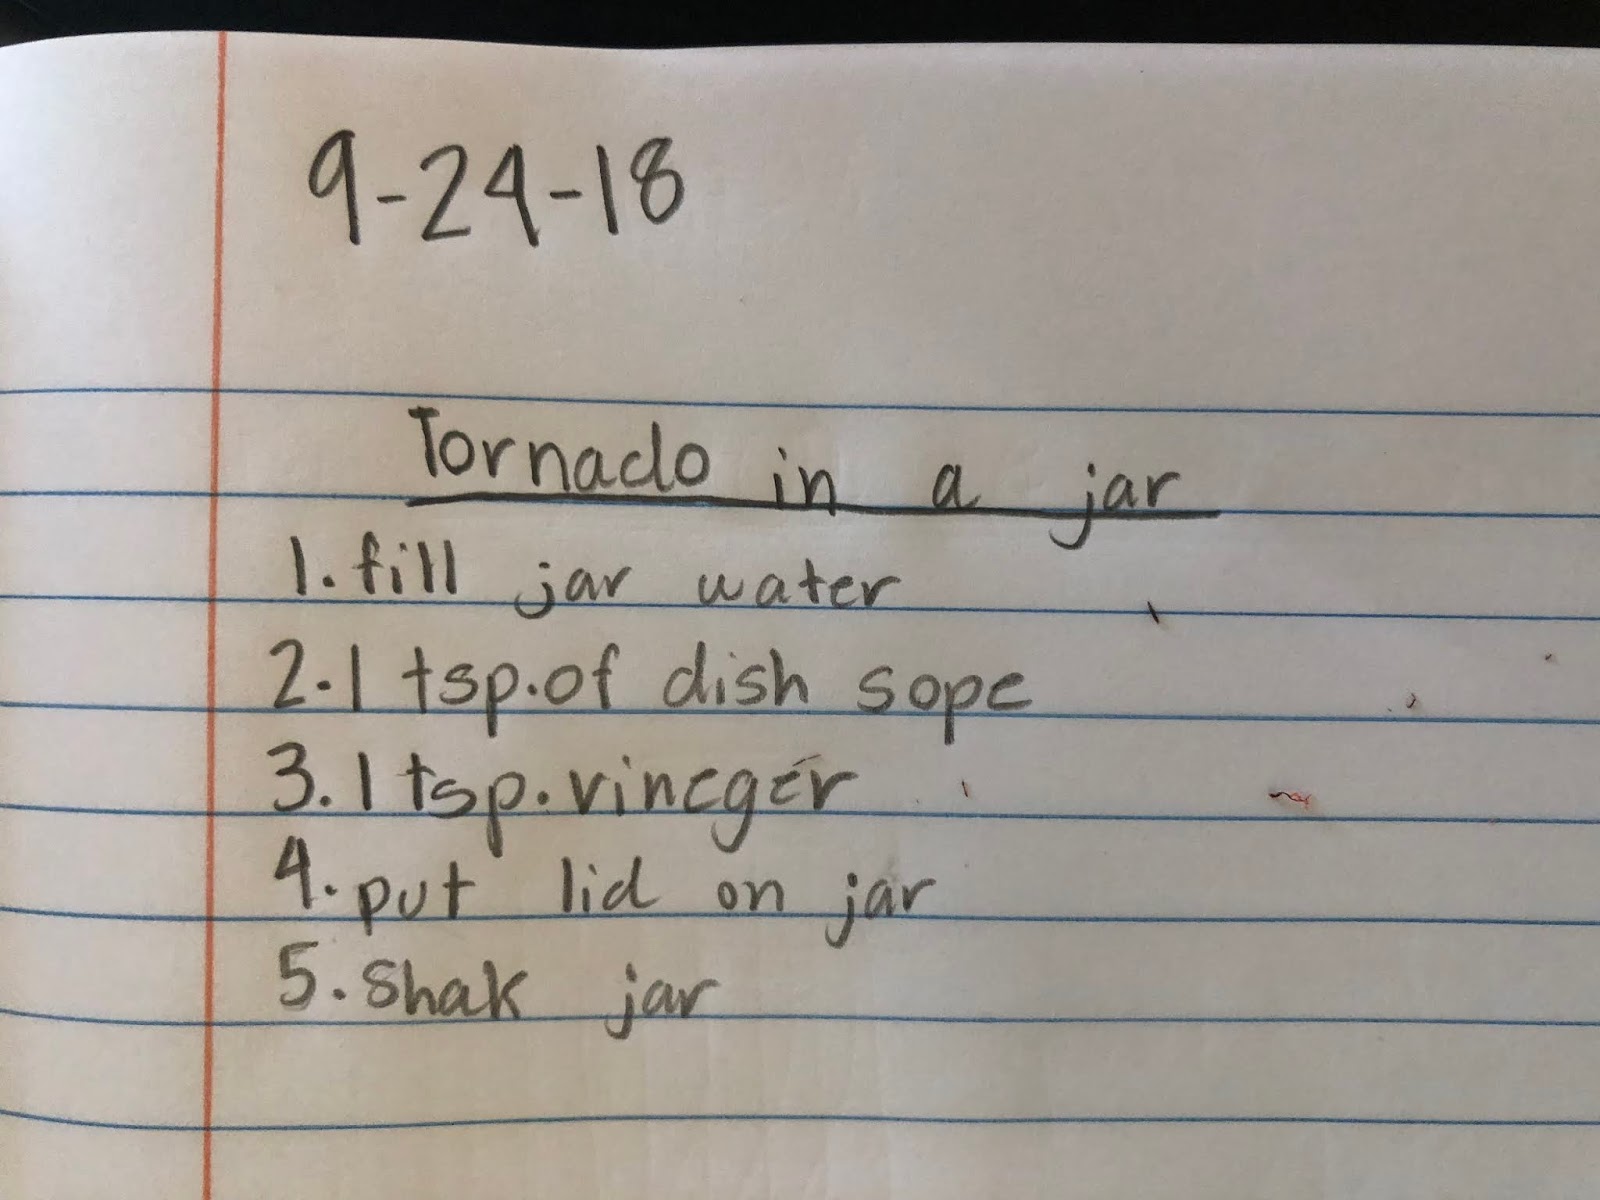 9-24-18
Tornado in a jar
1. fill jar water
2. 1 tsp. of dish sope
3. 1 tsp. vineger
4. put lid on jar
5. Shak jar